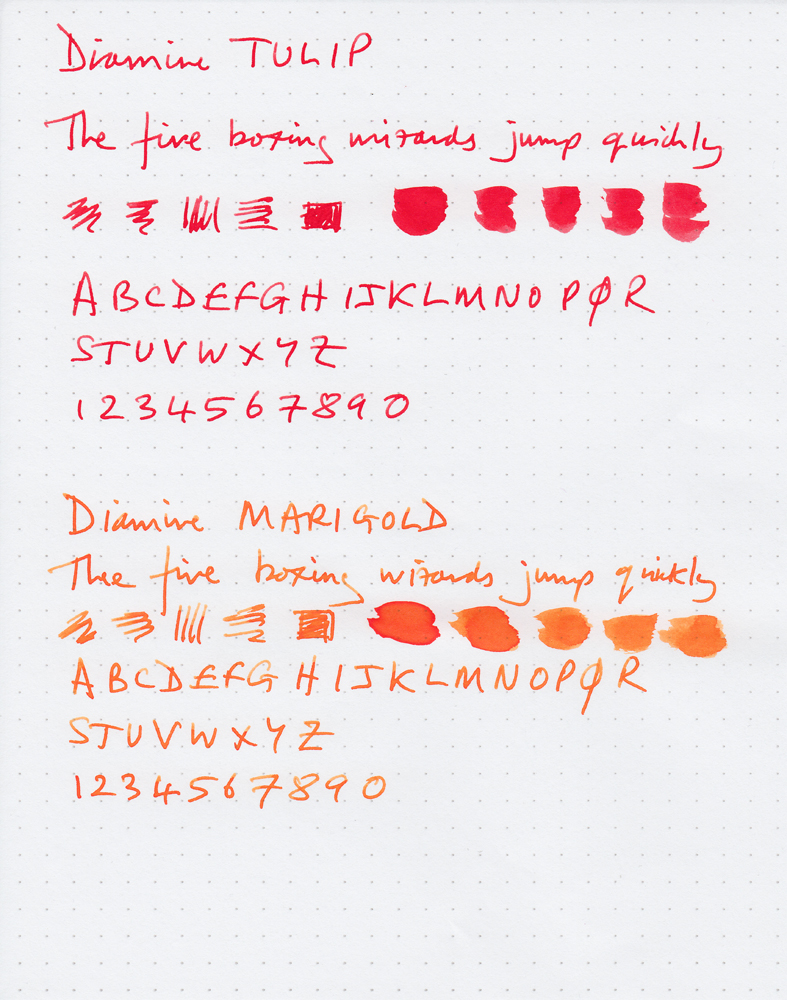 Diamine TULIP
The five boxing wizards jump quickly
ABCDEFGHIJKLMNOPQR
STUVWXYZ
1234567890
Diamine MARIGOLD
Thee five boxing wizards jump quickly
ABCDEFGHIJKLMNOPQR
STUVWXYZ
1234567890